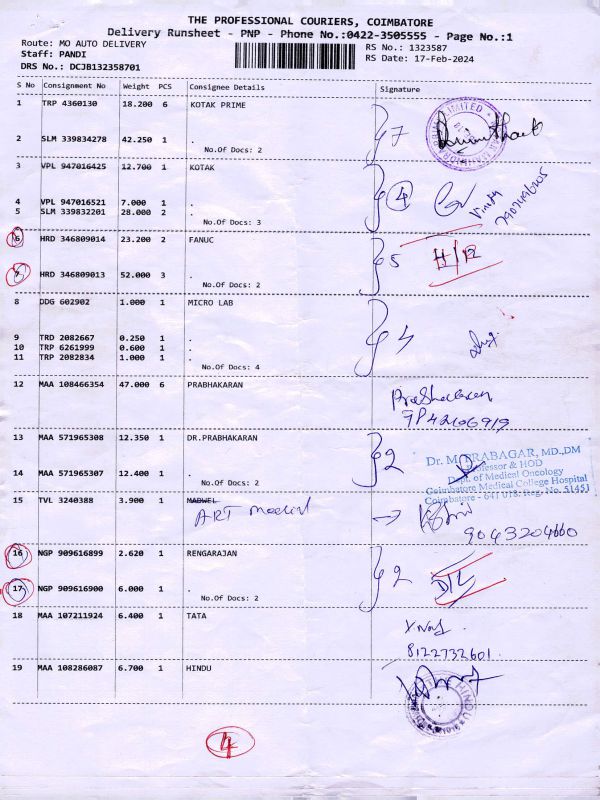 THE PROFESSIONAL COURIERS, COIMBATORE
Delivery Runsheet - PNP - Phone No.:0422-3505555 - Page No.:1
Route: MO AUTO DELIVERY RS No.: 1323587
Staff: PANDI RS Date: 17-Feb-2024
DRS No.: DCJB132358701
S No Consignment No Weight PCS Consignee Details Signature
1 TRP 4360130 18.200 6 KOTAK PRIME
7
2 SLM 339834278 42.250 1 .
No.Of Docs: 2
3 VPL 947016425 12.700 1 KOTAK
4
4 VPL 947016521 7.000 1 .
5 SLM 339832201 28.000 2 .
No.Of Docs: 3
6 HRD 346809014 23.200 2 FANUC
5 H/R
7 HRD 346809013 52.000 3 .
No.Of Docs: 2
8 DDG 602902 1.000 1 MICRO LAB
4
9 TRD 2082667 0.250 1 .
10 TRP 6261999 0.600 1 .
11 TRP 2082834 1.000 1 .
No.Of Docs: 4
12 MAA 108466354 47.000 6 PRABHAKARAN
13 MAA 571965308 12.350 1 DR.PRABHAKARAN
2
Dr. M.PRABAGAR, MD.,DM
Professor & HOD
14 MAA 571965307 12.400 1 .
Dept. of Medical Oncology
Coimbatore Medical College Hospital
No.Of Docs: 2
Coimbatore - 641 018. Reg. No. 51451
15 TVL 3240388 3.900 1 MADWEL
ART Medical
9043204660
16 NGP 909616899 2.620 1 RENGARAJAN
2 D/L
17 NGP 909616900 6.000 1 .
No.Of Docs: 2
18 MAA 107211924 6.400 1 TATA
8122732601
19 MAA 108286087 6.700 1 HINDU
4